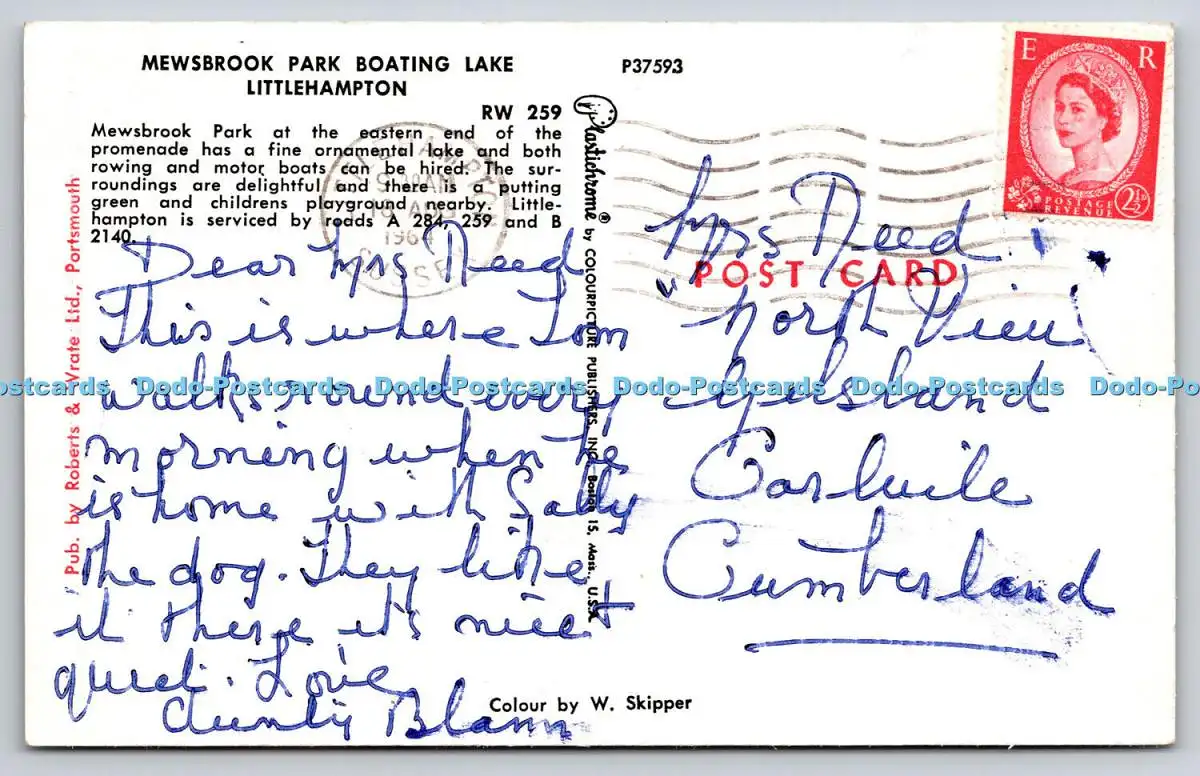 MEWSBROOK PARK BOATING LAKE
LITTLEHAMPTON
P37593
RW 259
Mewsbrook Park at the eastern end of the
promenade has a fine ornamental lake and both
rowing and motor boats can be hired. The sur-
roundings are delightful and there is a putting
green and childrens playground nearby. Little-
hampton is serviced by roads A 284, 259 and B
2140.
Pub. by Roberts & Wrate Ltd., Portsmouth
Plastichrome® by COLOURPICTURE PUBLISHERS, INC. Boston 15, Mass., U.S.A.
E R
POSTAGE
REVENUE
2½D
AM
1964
Dear Mrs Need
This is where Tom
walks round every
morning when he
is home with Sally
the dog. They like
it there it's nice +
quiet. Love
Aunty Blann
POST CARD
Mrs Need
"North View
Carluile
Cumberland
Colour by W. Skipper
Dodo-Postcards Dodo-Postcards Dodo-Postcards Dodo-Postcards Dodo-Postcards